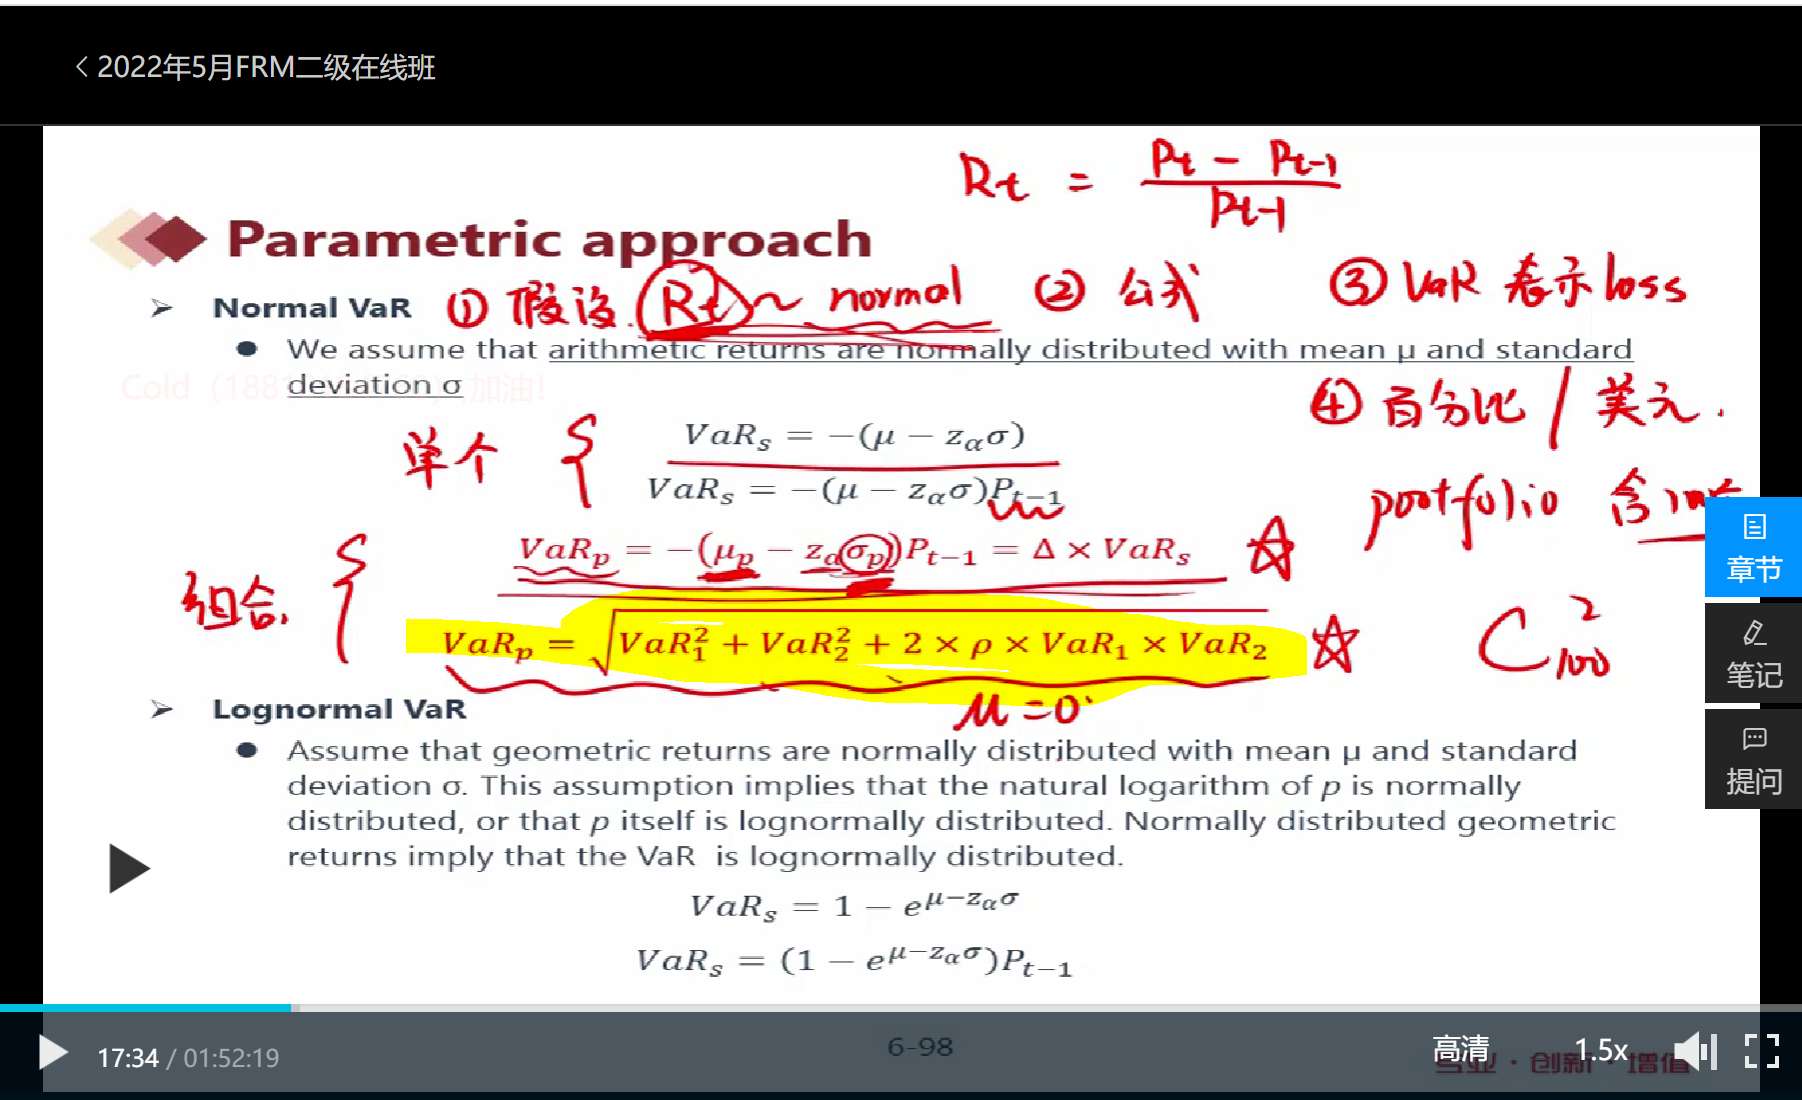 2022年5月FRM二级在线班
Rt = Pt - Pt-1 / Pt-1
Parametric approach
Normal VaR ① 假设 Rt ~ normal ② 公式 ③ VaR 表示 loss
We assume that arithmetic returns are normally distributed with mean μ and standard
deviation σ
Cold (188 加油!
④ 百分比 / 美元.
单个 { VaRₛ = −(μ − z_α σ)
VaRₛ = −(μ − z_α σ)P_{t−1}
portfolio 含
组合. { VaR_p = −(μ_p − z_α σ_p)P_{t−1} = Δ × VaRₛ ☆
VaR_p = √(VaR₁² + VaR₂² + 2 × ρ × VaR₁ × VaR₂) ☆
C²₁₀₀
μ = 0
Lognormal VaR
Assume that geometric returns are normally distributed with mean μ and standard
deviation σ. This assumption implies that the natural logarithm of p is normally
distributed, or that p itself is lognormally distributed. Normally distributed geometric
returns imply that the VaR is lognormally distributed.
VaRₛ = 1 − e^{μ−z_α σ}
VaRₛ = (1 − e^{μ−z_α σ})P_{t−1}
章节
笔记
提问
17:34 / 01:52:19
6-98
高清
1.5x
专业·创新·增值